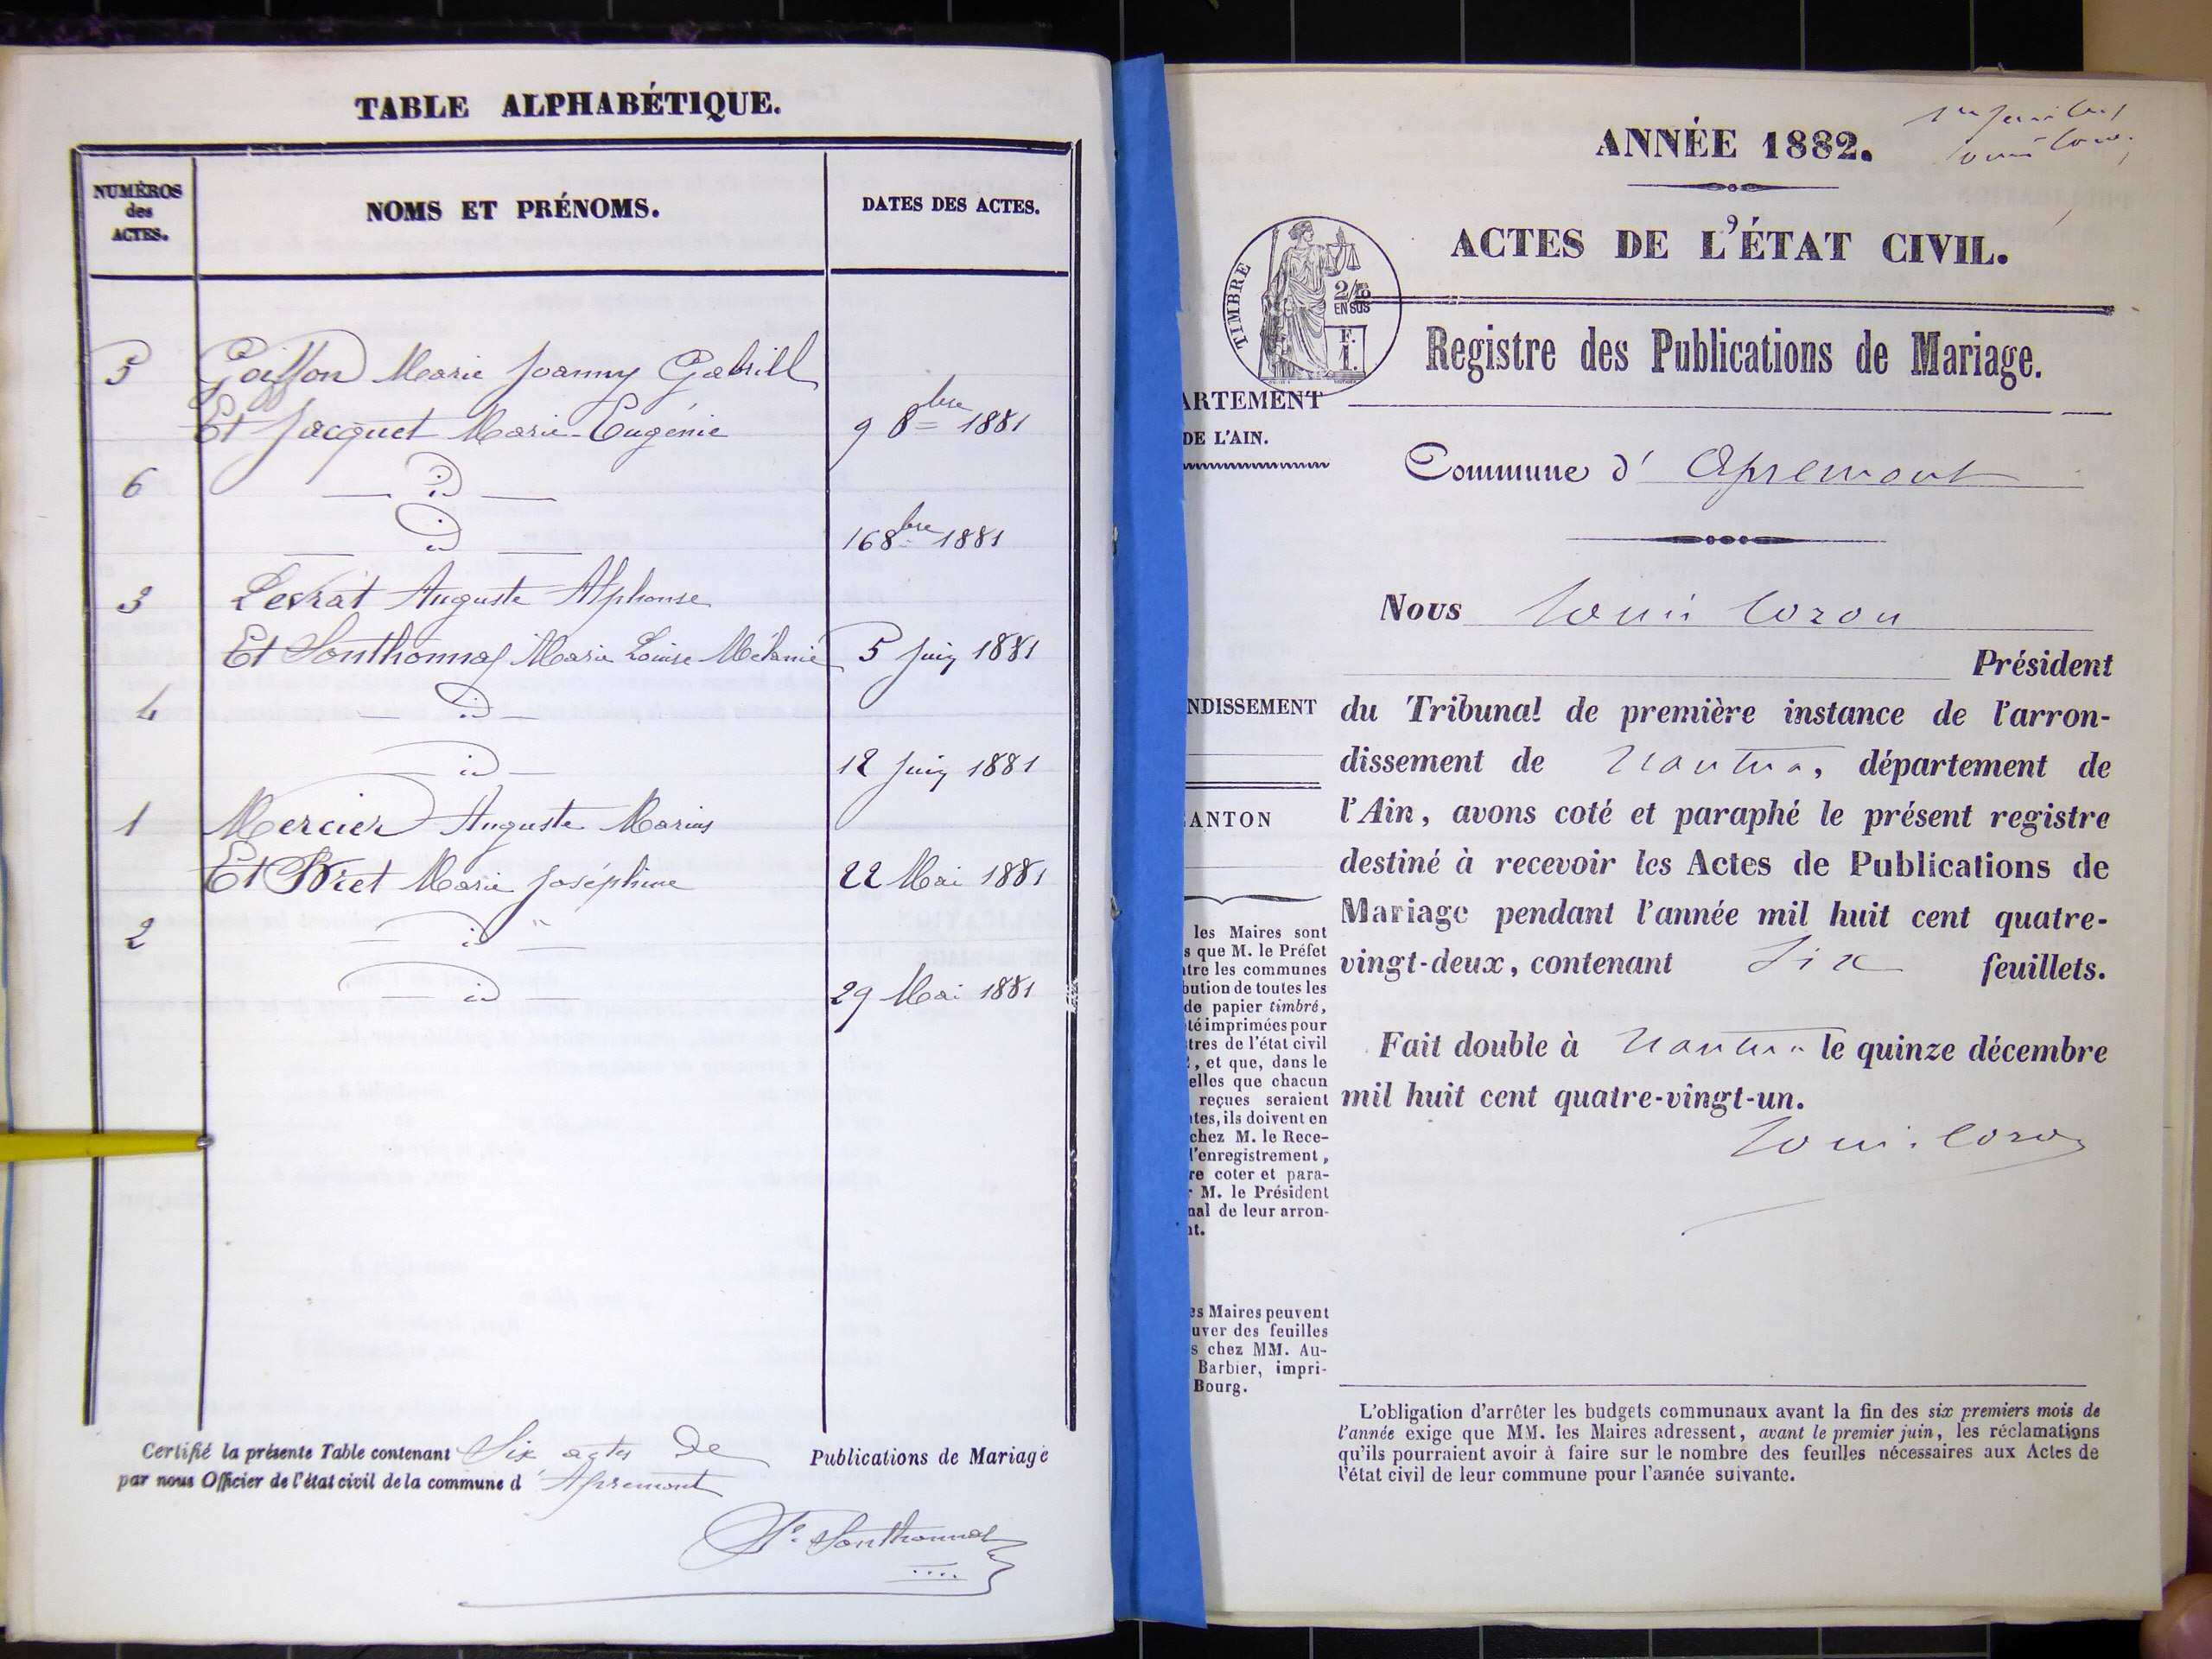 TABLE ALPHABÉTIQUE.
NUMÉROS
des
ACTES.
NOMS ET PRÉNOMS.
DATES DES ACTES.
5 Goiffon Marie Joanny Gabriel
Et Jacquet Marie-Eugénie 9 8bre 1881
6 — id —
— id — 16 8bre 1881
3 Levrat Auguste Alphonse
Et Sonthonnax Marie Louise Mélanie 5 Juin 1881
4 id —
— id — 12 Juin 1881
1 Mercier Auguste Marius
Et Bret Marie Joséphine 22 Mai 1881
2 — id —
— id — 29 Mai 1881
Certifié la présente Table contenant Six actes de Publications de Mariage
par nous Officier de l'état civil de la commune d'Apremont
Sonthonnax
ANNÉE 1882.
ACTES DE L'ÉTAT CIVIL.
TIMBRE
2/10
EN SUS
F.
1.
Registre des Publications de Mariage.
ARTEMENT
DE L'AIN.
Commune d' Apremont
Nous Louis Cozon
Président
NDISSEMENT
du Tribunal de première instance de l'arron-
dissement de Nantua, département de
l'Ain, avons coté et paraphé le présent registre
ANTON
destiné à recevoir les Actes de Publications de
Mariage pendant l'année mil huit cent quatre-
vingt-deux, contenant Six feuillets.
Fait double à Nantua le quinze décembre
mil huit cent quatre-vingt-un.
Louis Cozon
les Maires sont
s que M. le Préfet
tre les communes
bution de toutes les
de papier timbré,
té imprimées pour
tres de l'état civil
, et que, dans le
elles que chacun
reçues seraient
tes, ils doivent en
chez M. le Rece-
l'enregistrement,
re coter et para-
r M. le Président
nal de leur arron-
nt.
es Maires peuvent
uver des feuilles
s chez MM. Au-
Barbier, impri-
Bourg.
L'obligation d'arrêter les budgets communaux avant la fin des six premiers mois de
l'année exige que MM. les Maires adressent, avant le premier juin, les réclamations
qu'ils pourraient avoir à faire sur le nombre des feuilles nécessaires aux Actes de
l'état civil de leur commune pour l'année suivante.